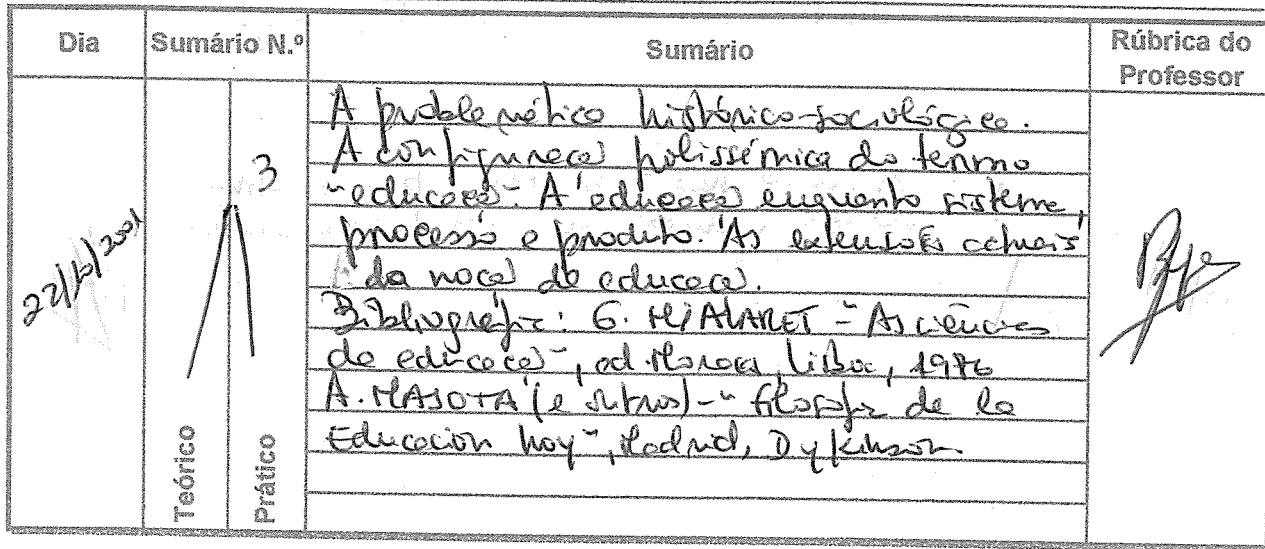 Dia Sumário N.º Sumário Rúbrica do Professor
22/10/2001
3
A problemática histórico-sociológica.
A configuração polissémica do termo
"educação". A educação enquanto sistema,
processo e produto. As extensões actuais
da noção de educação.
Bibliografia: G. MIALARET - "As ciências
da educação", ed. Moraes, Lisboa, 1976
A. MASOTA (e outros) - "Filosofia de la
Educacion hoy", Madrid, Dykinson.
Teórico
Prático